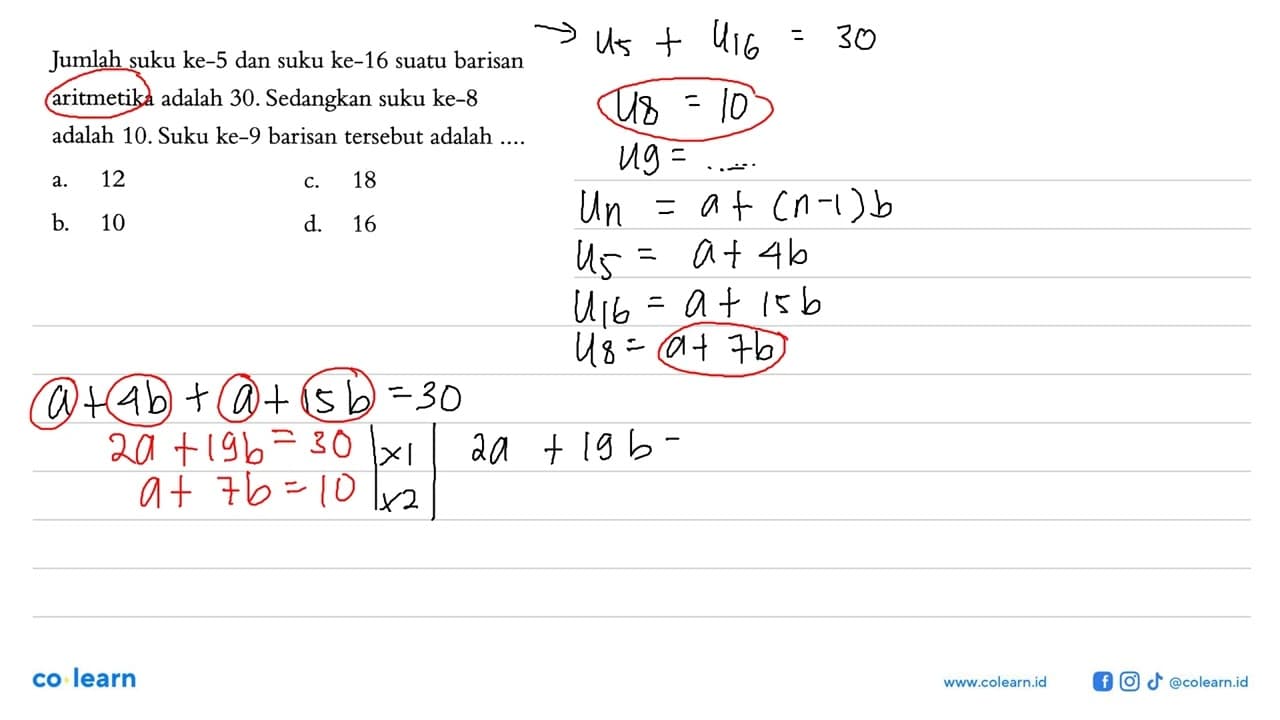 Jumlah suku ke-5 dan suku ke-16 suatu barisan
aritmetika adalah 30. Sedangkan suku ke-8
adalah 10. Suku ke-9 barisan tersebut adalah ....
a. 12 c. 18
b. 10 d. 16
→ U5 + U16 = 30
U8 = 10
U9 = .....
Un = a + (n-1)b
U5 = a + 4b
U16 = a + 15b
U8 = a + 7b
a + 4b + a + 15b = 30
2a + 19b = 30 |x1| 2a + 19b -
a + 7b = 10 |x2|
co learn
www.colearn.id @colearn.id